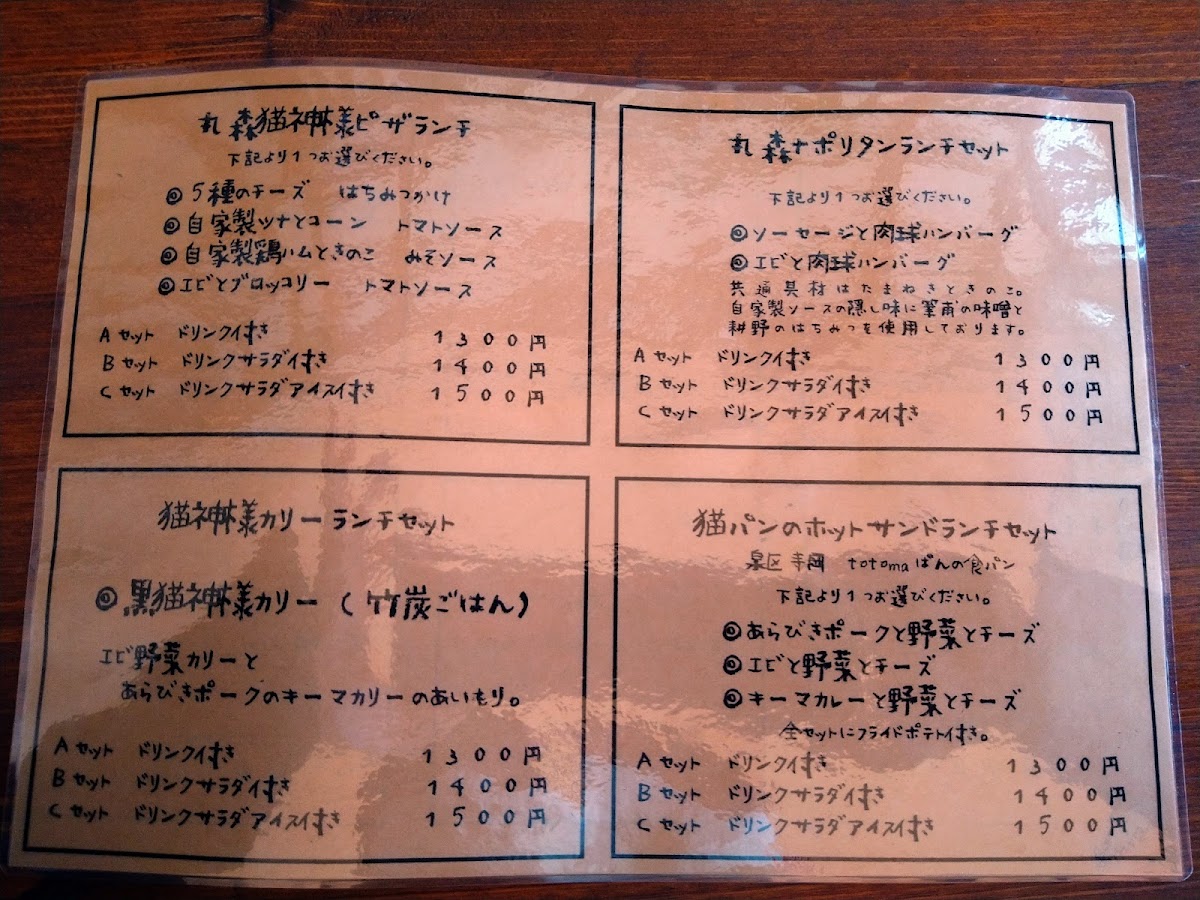 丸森猫神様ピザランチ
下記より1つお選びください。
◎5種のチーズ はちみつかけ
◎自家製ツナとコーン トマトソース
◎自家製鶏ハムときのこ みそソース
◎エビとブロッコリー トマトソース
Aセット ドリンク付き 1300円
Bセット ドリンクサラダ付き 1400円
Cセット ドリンクサラダアイス付き 1500円
丸森ナポリタンランチセット
下記より1つお選びください。
◎ソーセージと肉球ハンバーグ
◎エビと肉球ハンバーグ
共通具材はたまねきときのこ。
自家製ソースの隠し味に筆甫の味噌と
耕野のはちみつを使用しております。
Aセット ドリンク付き 1300円
Bセット ドリンクサラダ付き 1400円
Cセット ドリンクサラダアイス付き 1500円
猫神様カリーランチセット
◎黒猫神様カリー(竹炭ごはん)
エビ野菜カリーと
あらびきポークのキーマカリーのあいもり。
Aセット ドリンク付き 1300円
Bセット ドリンクサラダ付き 1400円
Cセット ドリンクサラダアイス付き 1500円
猫パンのホットサンドランチセット
泉区寺岡 totomaぱんの食パン
下記より1つお選びください。
◎あらびきポークと野菜とチーズ
◎エビと野菜とチーズ
◎キーマカレーと野菜とチーズ
全セットにフライドポテト付き。
Aセット ドリンク付き 1300円
Bセット ドリンクサラダ付き 1400円
Cセット ドリンクサラダアイス付き 1500円